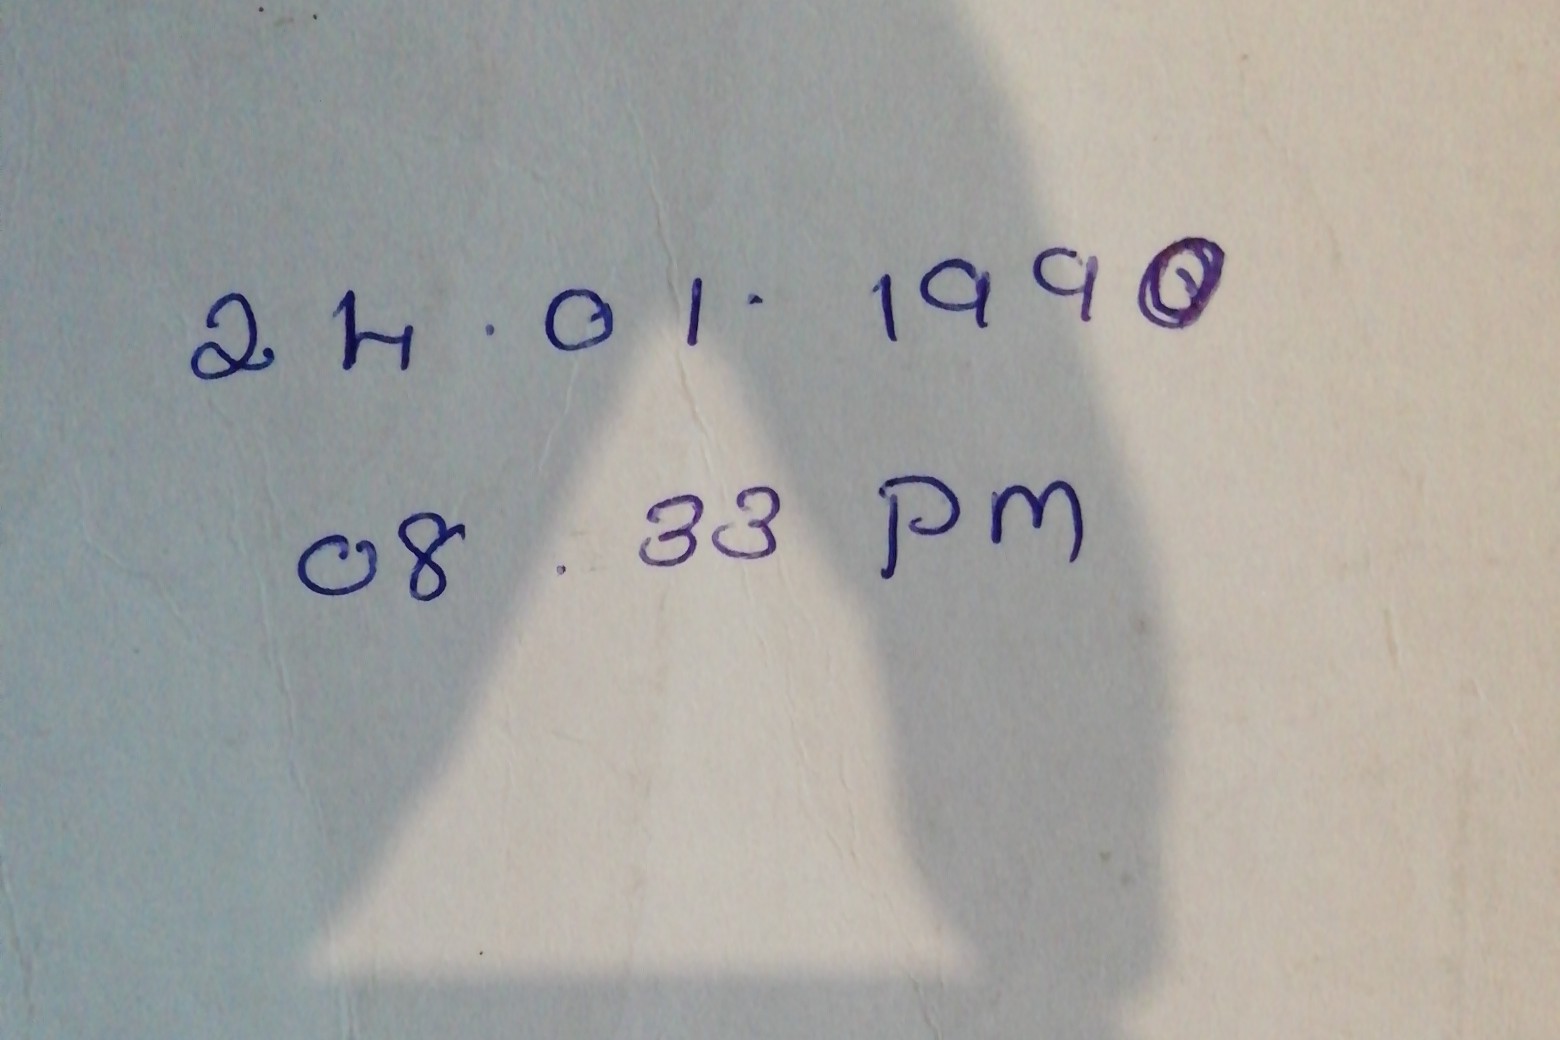 24.01.1990
08.33 PM